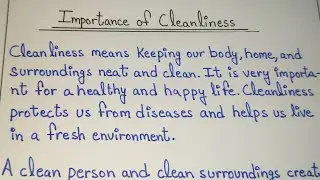 Importance of Cleanliness
Cleanliness means keeping our body, home, and
surroundings neat and clean. It is very importa-
nt for a healthy and happy life. Cleanliness
protects us from diseases and helps us live
in a fresh environment.
A clean person and clean surroundings creat